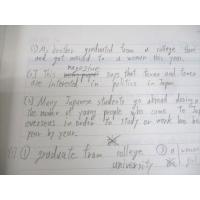 (5) My brother graduated from a college there
and got married to a woman this year.
(6) This magazine says that fewer and fewer
are interested in politics in Japan.
(7) Many Japanese students go abroad during a
the number of young people who come to Jap
overseas in order to study or work has be
year by year.
(7) ① graduate from college ② a woman
university